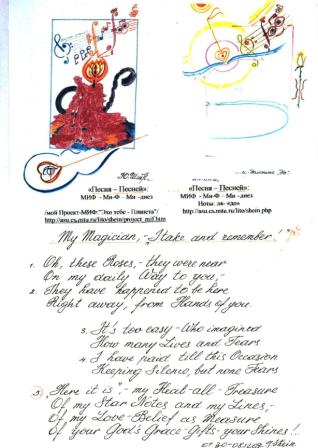 Ю.Шейн
«Песня – Песней»:
МИФ - Ми-Ф - Ми -диез
/мой Проект-МИФ "Это тебе - Планета"/
http://asu.cs.nstu.ru/lito/shein/project_mif.htm
«Песня – Песней»:
МИФ - Ми-Ф - Ми -диез
Ноты: ля- «до»
http://asu.cs.nstu.ru/lito/shein.php
My Magician,- "I take and remember!"
1. Oh, these Roses,- they were near
On my daily Way to you,-
2. They have happened to be here
Right away, from Hands of you.
3. It's too easy - Who imagined
How many Lives and Tears
4. I have paid till this Occasion
Keeping Silence, but none Fears
5. "Here it is",- my Heal-all-Treasure
Of my Star Notes and my Lines,-
Of my Love-Belief as Measure
Of your God's Grace-Gifts-your Shines!..